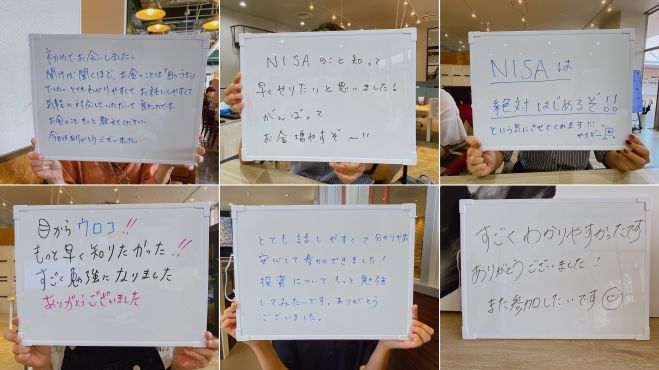 初めてお会いしました。
聞けば聞くほど、お金のことは"目からウロコ"
でした。とてもわかりやすくて お話ししやすくて
気軽に対応していただいて 良かったです。
お金のこともっと教えてください。
今日はありがとうございました。
NISAのこと知って
早くやりたいと思いました!
がんばって
お金増やすぞ〜!!
NISAは
絶対はじめるぞ!!
という気にさせてくれます!!!
やるぞー
目からウロコ!!
もっと早く知りたかった!!
すごく勉強になりました
ありがとうございました
とても話しやすくて分かりやすく
安心して参加できました!
投資について、もっと勉強
してみたいです。ありがとう
ございました。
すごくわかりやすかったです
ありがとうございました!
また参加したいです